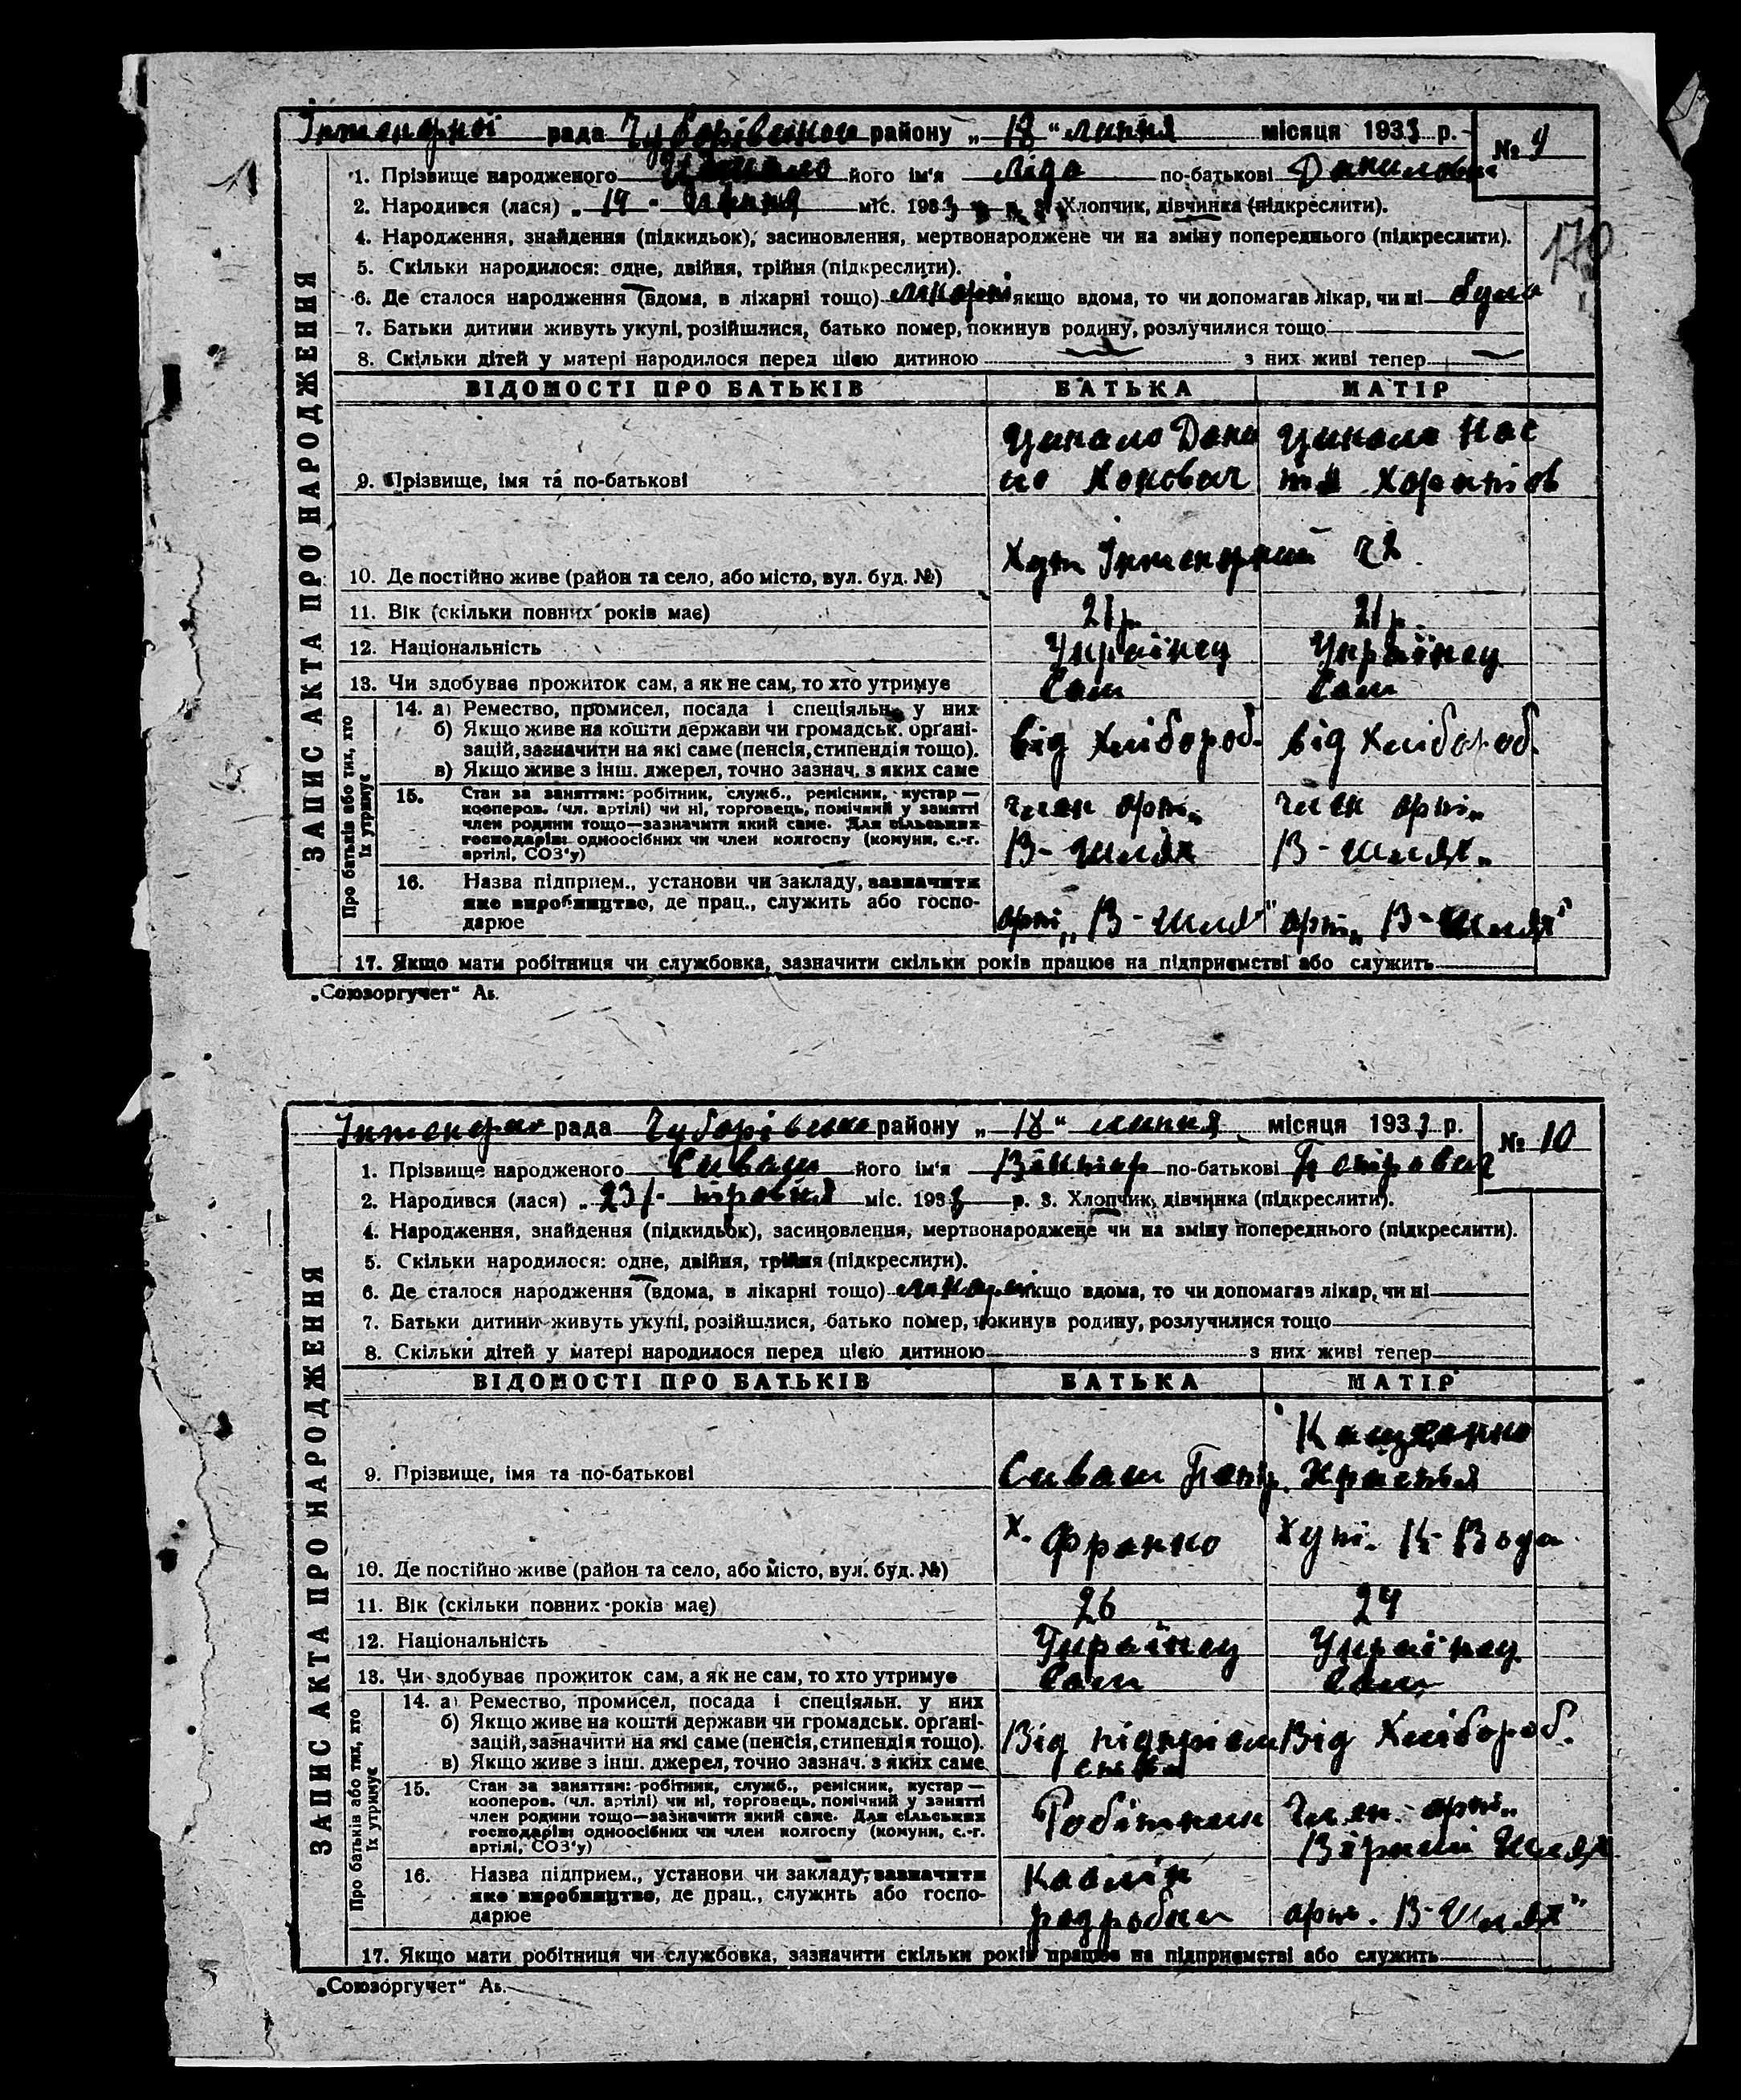 рада Чубарівського району „ 18 “ липня місяця 1933 р.
№ 9
1. Прізвище народженого його ім'я Ліда по-батькові Даниловна
2. Народився (лася) „ 14 - міс. 1933 Хлопчик, дівчинка (підкреслити).
4. Народження, знайдення (підкидьок), засиновлення, мертвонароджене чи на зміну попереднього (підкреслити).
170
5. Скільки народилося: одне, двійня, трійня (підкреслити).
6. Де сталося народження (вдома, в лікарні тощо) лікарні якщо вдома, то чи допомагав лікар, чи ні
7. Батьки дитини живуть укупі, розійшлися, батько помер, покинув родину, розлучилися тощо
8. Скільки дітей у матері народилося перед цією дитиною з них живі тепер
ЗАПИС АКТА ПРО НАРОДЖЕННЯ
ВІДОМОСТІ ПРО БАТЬКІВ БАТЬКА МАТІР
Цикало Дани Цикало Нас
9. Прізвище, імя та по-батькові
Хут
10. Де постійно живе (район та село, або місто, вул. буд. №)
11. Вік (скільки повних років має) 21 р. 21 р.
12. Національність Українец Українец
13. Чи здобуває прожиток сам, а як не сам, то хто утримує Сам Сам
Про батьків або тих, хто
їх утримує
14. а) Ремество, промисел, посада і спеціяльн. у них
б) Якщо живе на кошти держави чи громадськ. орґані-
зацій, зазначити на які саме (пенсія, стипендія тощо). від хлібороб. від хлібороб.
в) Якщо живе з інш. джерел, точно зазнач. з яких саме
15. Стан за заняттям: робітник, служб., ремісник, кустар —
кооперов. (чл. артілі) чи ні, торговець, помічний у занятті член арт. член арт.
член родини тощо—зазначити який саме. Для сільських
господарів: одноосібних чи член колгоспу (комуни, с.-г. В-шлях В-шлях
артілі, СОЗ'у)
16. Назва підприєм., установи чи закладу, зазначити
яке виробництво, де прац., служить або госпо-
дарюе арт „ В-шлях" арт „ В-шлях"
17. Якщо мати робітниця чи службовка, зазначити скільки років працює на підприємстві або служить
„Союзоргучет“ Аь.
рада Чубарівського району „ 18 “ липня місяця 1933 р.
№ 10
1. Прізвище народженого Сиваш його ім'я Віктор по-батькові Петрович
2. Народився (лася) „ 23/- травня міс. 1933 р. 3. Хлопчик, дівчинка (підкреслити).
4. Народження, знайдення (підкидьок), засиновлення, мертвонароджене чи на зміну попереднього (підкреслити).
5. Скільки народилося: одне, двійня, трійня (підкреслити).
6. Де сталося народження (вдома, в лікарні тощо) лікарні якщо вдома, то чи допомагав лікар, чи ні
7. Батьки дитини живуть укупі, розійшлися, батько помер, покинув родину, розлучилися тощо
8. Скільки дітей у матері народилося перед цією дитиною з них живі тепер
ЗАПИС АКТА ПРО НАРОДЖЕННЯ
ВІДОМОСТІ ПРО БАТЬКІВ БАТЬКА МАТІР
9. Прізвище, імя та по-батькові Сиваш Петр.
х. Франко Хут. К-Вода
10. Де постійно живе (район та село, або місто, вул. буд. №)
11. Вік (скільки повних років має) 26 24
12. Національність Українец Українец
13. Чи здобуває прожиток сам, а як не сам, то хто утримує Сам Сам
Про батьків або тих, хто
їх утримує
14. а) Ремество, промисел, посада і спеціяльн. у них
б) Якщо живе на кошти держави чи громадськ. орґані-
зацій, зазначити на які саме (пенсія, стипендія тощо). Від підприєм Від хлібороб.
в) Якщо живе з інш. джерел, точно зазнач. з яких саме ства
15. Стан за заняттям: робітник, служб., ремісник, кустар —
кооперов. (чл. артілі) чи ні, торговець, помічний у занятті Робітник член. арт.
член родини тощо—зазначити який саме. Для сільських
господарів: одноосібних чи член колгоспу (комуни, с.-г. Вірний Шлях
артілі, СОЗ'у)
16. Назва підприєм., установи чи закладу, зазначити Каолін
яке виробництво, де прац., служить або госпо-
дарюе арт. В-шлях"
17. Якщо мати робітниця чи службовка, зазначити скільки років працює на підприємстві або служить
„Союзоргучет“ Аь.